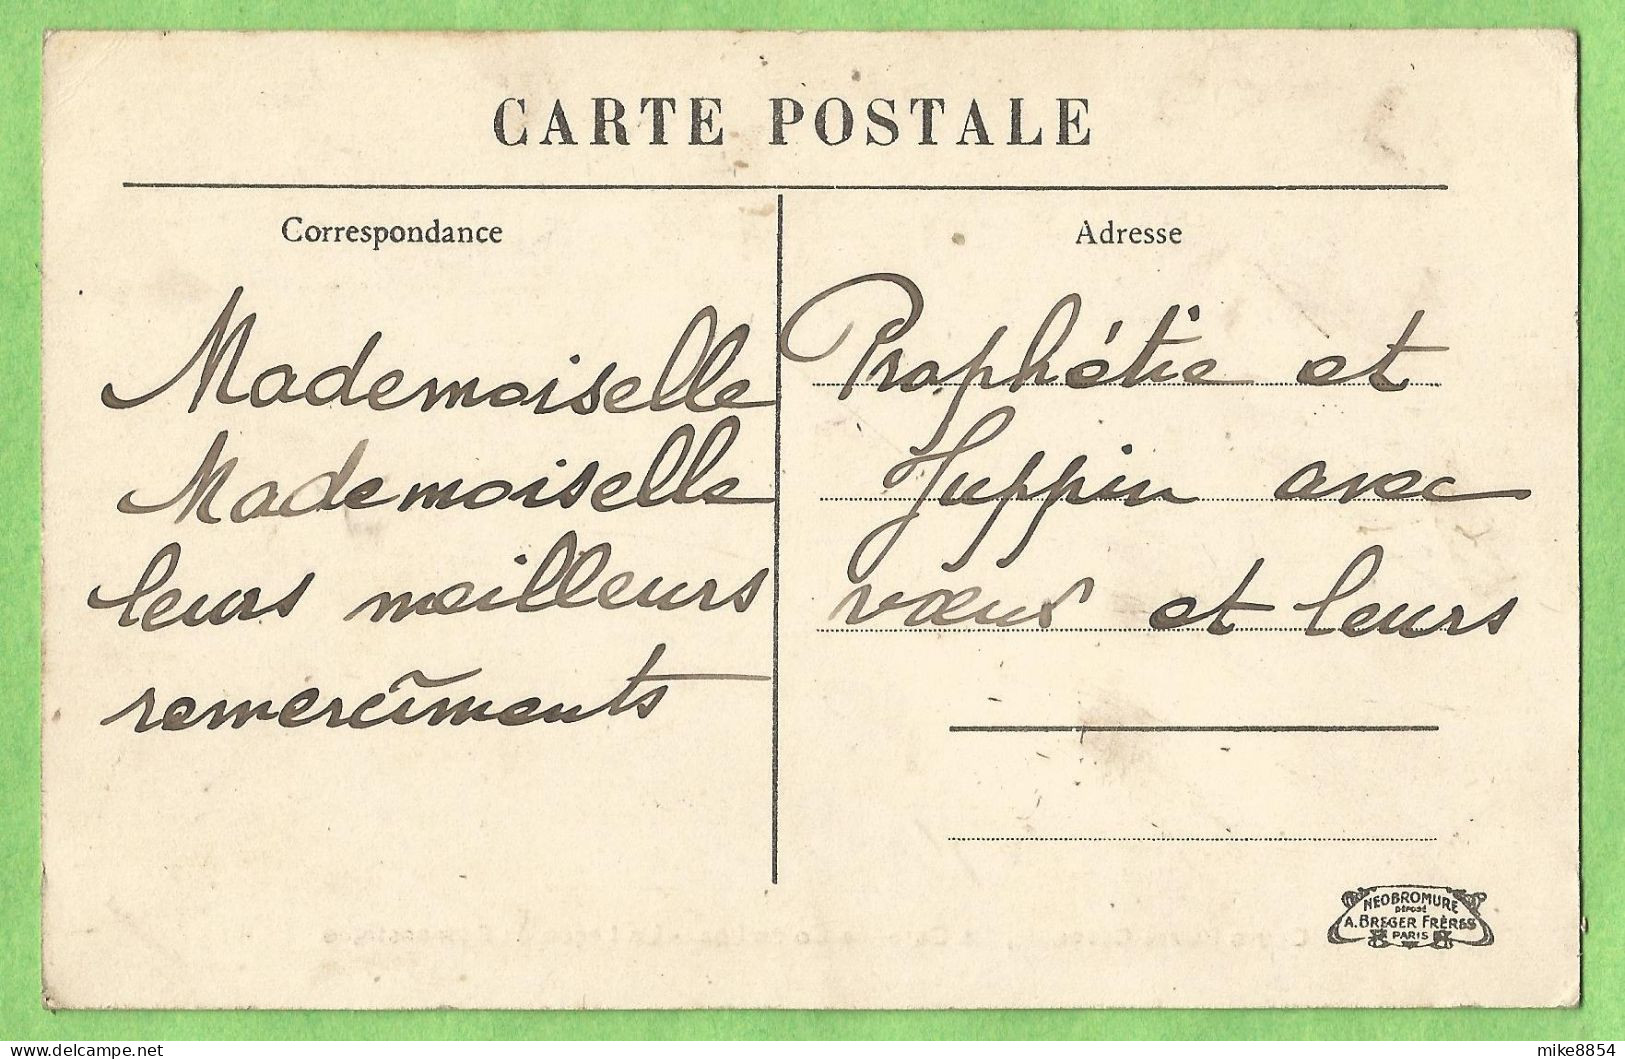 CARTE POSTALE
Correspondance
Adresse
Mademoiselle Prophétie et
Mademoiselle Juppin avec
leurs meilleurs vœux et leurs
remerciments
NEOBROMURE
DÉPOSÉ
A. BREGER FRÈRES
PARIS
delcampe.net
mike8854